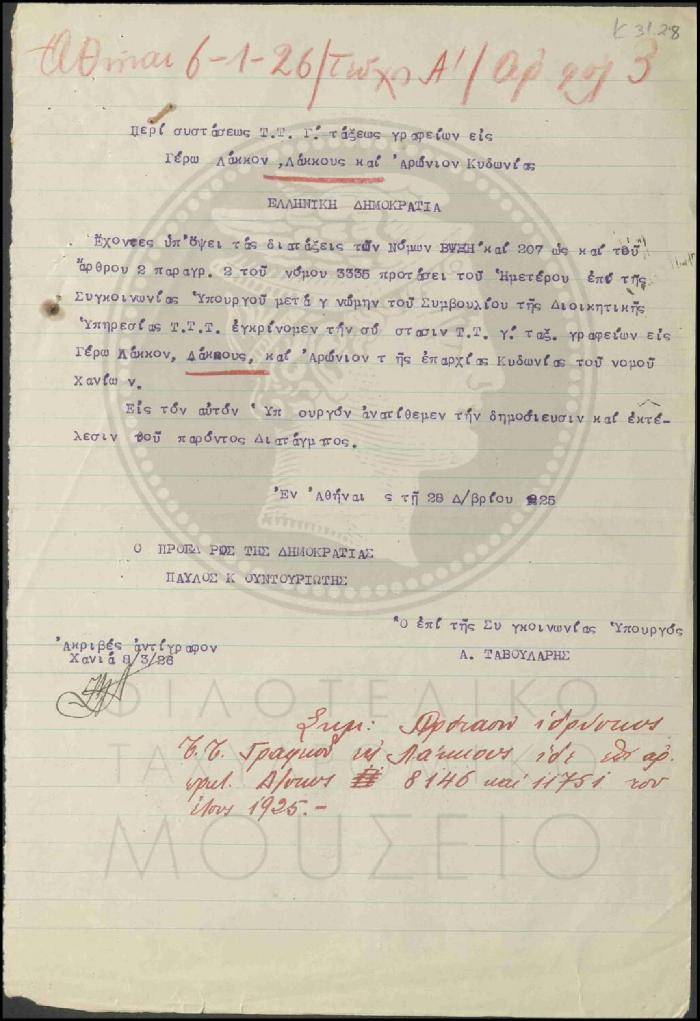 Κ 31.28
Ἀθῆναι 6-1-26/Τεῦχ Α'/ Αρ φυλ 3
Περί συστάσεως Τ.Τ. Γ΄ τάξεως γραφείων εἰς
Γέρω Λάκκον ,Λάκκους καί Ἀρώνιον Κυδωνίας
ΕΛΛΗΝΙΚΗ ΔΗΜΟΚΡΑΤΙΑ
Ἔχοντες ὑπ'ὄψει τάς διατάξεις τῶν Νόμων ΒΨΞΗ καί 207 ὡς καί τοῦ
ἄρθρου 2 παραγρ. 2 τοῦ νόμου 3335 προτάσει τοῦ Ἡμετέρου ἐπί τῆς
Συγκοινωνίας Ὑπουργοῦ μετά γ νώμην τοῦ Συμβουλίου τῆς Διοικητικῆς
Ὑπηρεσίας Τ.Τ.Τ. ἐγκρίνομεν τήν σύ στασιν Τ.Τ. γ΄ ταξ. γραφείων εἰς
Γέρω Λάκκον, Λάκκους, καί Ἀρώνιον τ ῆς ἐπαρχίας Κυδωνίας τοῦ νομοῦ
Χανίω ν.
Εἰς τόν αὐτόν Ὑπ ουργόν ἀνατίθεμεν τήν δημοσίευσιν καί ἐκτέ-
λεσιν τοῦ παρόντος Διατάγματος.
Ἐν Ἀθήναι ς τῇ 28 Δ/βρίου 925
Ο ΠΡΟΕΔ ΡΟΣ ΤΗΣ ΔΗΜΟΚΡΑΤΙΑΣ
ΠΑΥΛΟΣ Κ ΟΥΝΤΟΥΡΙΩΤΗΣ
Ὁ ἐπί τῆς Συ γκοινωνίας Ὑπουργός
Α. ΤΑΒΟΥΛΑΡΗΣ
Ἀκριβές ἀντίγραφον
Χανιά 8/3/26
Σημ: Πρότασιν ἱδρύσεως
Τ.Τ. Γραφείου εἰς Λάκκους ἰδέ ὑπ ἀρ.
πρωτ. 8146 καί 11751 τοῦ
ἔτους 1925.-
ΦΙΛΟΤΕΛΙΚΟ
ΤΑΧΥΔΡΟΜΙΚΟ
ΜΟΥΣΕΙΟ